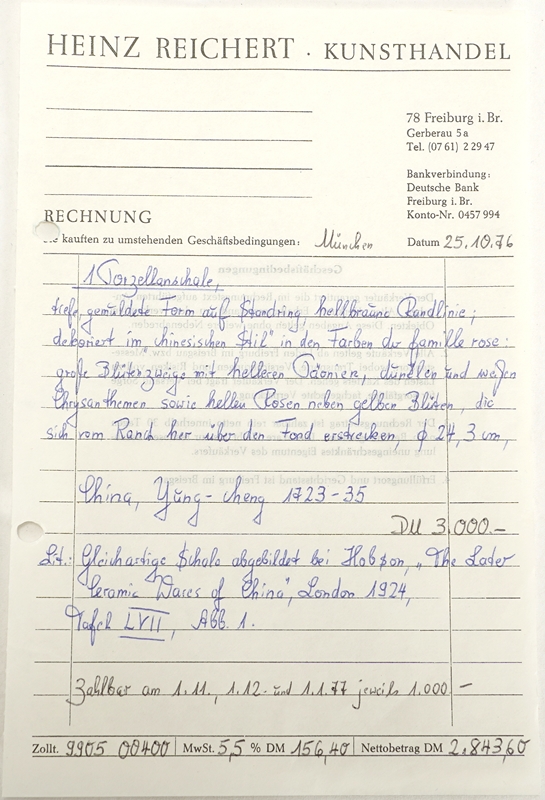 HEINZ REICHERT · KUNSTHANDEL
78 Freiburg i. Br.
Gerberau 5 a
Tel. (07 61) 2 29 47
Bankverbindung:
Deutsche Bank
Freiburg i. Br.
Konto-Nr. 0457 994
RECHNUNG
kauften zu umstehenden Geschäftsbedingungen: München Datum 25.10.76
1 Porzellanschale,
tiefe gemuldete Form auf Standring, hellbraune Randlinie;
dekoriert im „chinesischen Stil" in den Farben der famille rose:
große Blütenzweige mit helleren Päonien, dunklen und weißen
Chrysanthemen sowie hellen Rosen neben gelben Blüten, die
sich vom Rand her über den Fond erstrecken, φ 24,3 cm,
China, Yung-cheng 1723-35
DM 3.000.-
Lit.: Gleichartige Schale abgebildet bei Hobson, „The Later
Ceramic Wares of China", London 1924,
Tafel LVII, Abb. 1.
Zahlbar am 1.11., 1.12. und 1.1.77 jeweils 1.000.-
Zollt. 9905 00400 MwSt. 5,5 % DM 156,40 Nettobetrag DM 2.843,60